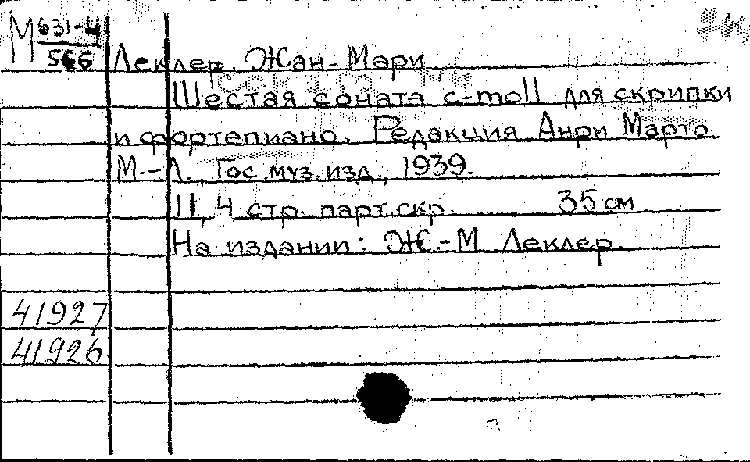 М 631-4
566
Леклер, Жан-Мари
Шестая соната c-moll для скрипки
и фортепиано. Редакция Анри Марто
М.-Л. Гос. муз. изд., 1939.
11, 4 стр. парт. скр. 35 см
На издании: Ж.-М. Леклер.
41927
41926